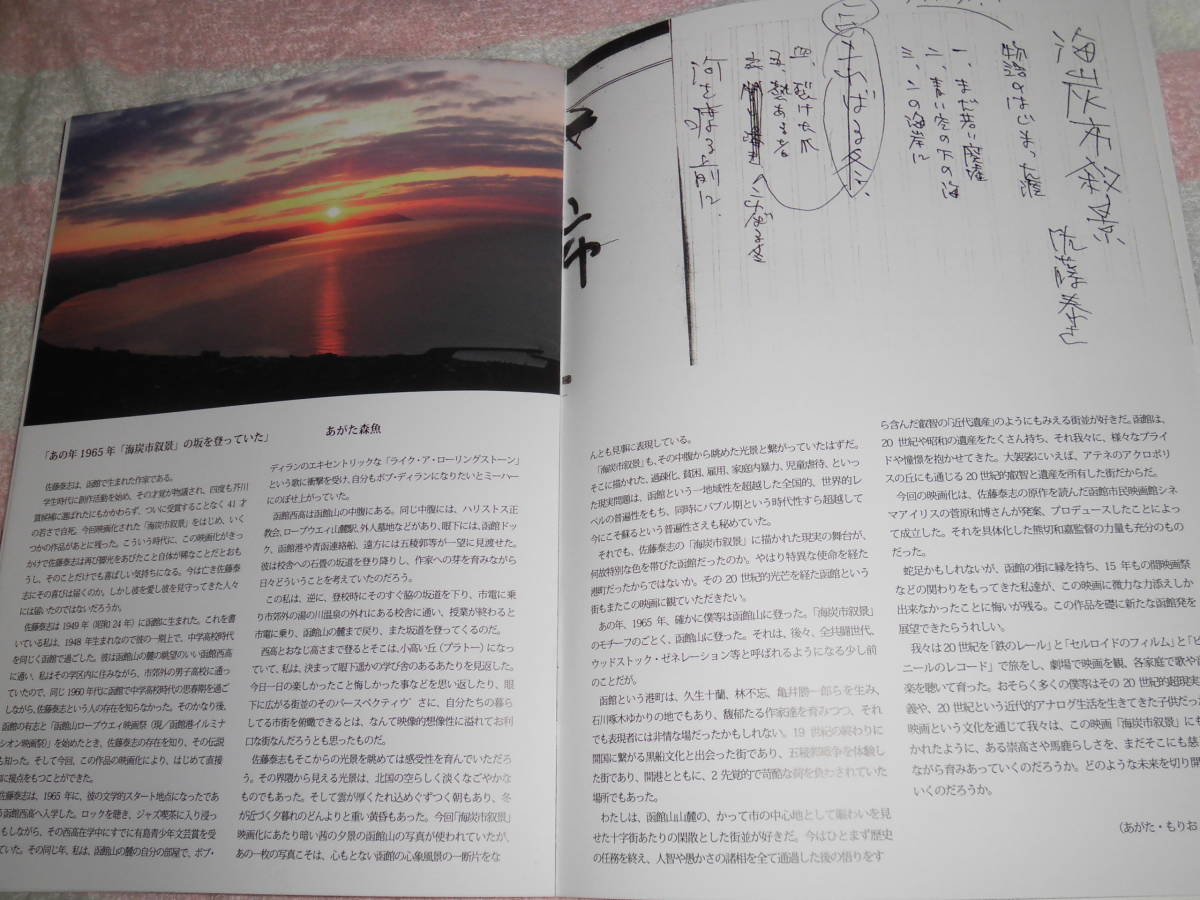 「あの年1965年「海炭市叙景」の坂を登っていた」
あがた森魚
佐藤泰志は、函館で生まれた作家である。
学生時代に創作活動を始め、その才覚が物議され、四度も芥川
賞候補に選ばれたにもかかわらず、ついに受賞することなく41才
の若さで自死。今回映画化された「海炭市叙景」をはじめ、いく
つかの作品があとに残った。こういう時代に、この映画化がきっ
かけで佐藤泰志は再び脚光をあびたこと自体が稀なことだとおも
うし、そのことだけでも喜ばしい気持ちになる。今は亡き佐藤泰
志にその喜びは届くのか。しかし彼を愛し彼を見守ってきた人々
には届いたのではないだろうか。
佐藤泰志は1949年（昭和24年）に函館に生まれた。これを書
いている私は、1948年生まれなので彼の一期上で、中学高校時代
を同じく函館で過ごした。彼は函館山の麓の眺望のいい函館西高
に通い、私はその学区内に住みながら、市郊外の男子高校に通っ
ていたので、同じ1960年代に函館で中学高校時代の思春期を過ご
しながら、佐藤泰志という人の存在を知らなかった。そのかなり後、
函館の有志と「函館山ロープウェイ映画祭（現／函館港イルミナ
シオン映画祭）」を始めたとき、佐藤泰志の存在を知り、その伝説
も知った。そして今回、この作品の映画化により、はじめて直接
的に視点をもつことができた。
佐藤泰志は、1965年に、彼の文学的スタート地点になったであ
る函館西高へ入学した。ロックを聴き、ジャズ喫茶に入り浸っ
もしながら、その西高在学中にすでに有島青少年文芸賞を受
ていた。その同じ年、私は、函館山の麓の自分の部屋で、ボブ・
ディランのエキセントリックな「ライク・ア・ローリングストーン」
という歌に衝撃を受け、自分もボブ・ディランになりたいとミーハー
にのぼせ上がっていた。
函館西高は函館山の中腹にある。同じ中腹には、ハリストス正
教会、ロープウエイ山麓駅、外人墓地などがあり、眼下には、函館ドッ
ク、函館港や青函連絡船、遠方には五稜郭等が一望に見渡せた。
彼は校舎への石畳の坂道を登り降りし、作家への芽を育みながら
日々どういうことを考えていたのだろう。
この私は、逆に、登校時にそのすぐ脇の坂道を下り、市電に乗
り市郊外の湯の川温泉の外れにある校舎に通い、授業が終わると
市電に乗り、函館山の麓まで戻り、また坂道を登ってくるのだ。
西高とおなじ高さまで登るとそこは、小高い丘（プラトー）になっ
ていて、私は、決まって眼下遥かの学び舎のあるあたりを見返した。
今日一日の楽しかったこと悔しかった事などを思い返したり、眼
下に広がる街並のそのパースペクティヴさに、自分たちの暮ら
してる市街を俯瞰できるとは、なんて映像的想像性に溢れてお利
口な街なんだろうとも思ったものだ。
佐藤泰志もそこからの光景を眺めては感受性を育んでいただろ
う。その界隈から見える光景は、北国の空らしく淡くなごやかな
ものでもあった。そして雲が厚くたれ込めぐずつく朝もあり、冬
が近づく夕暮れのどんよりと重い黄昏もあった。今回「海炭市叙景」
映画化にあたり暗い茜の夕景の函館山の写真が使われていたが、
あの一枚の写真こそは、心もとない函館の心象風景の一断片をな
海炭市叙景
佐藤泰志
物語のはじまった崖
一、まだ若い廃墟
二、青い空の下の海
三、この海岸に
四、裂けた爪
んとも見事に表現している。
「海炭市叙景」も、その中腹から眺めた光景と繋がっていたはずだ。
そこに描かれた、過疎化、貧困、雇用、家庭内暴力、児童虐待、といっ
た現実問題は、函館という一地域性を超越した全国的、世界的レ
ベルの普遍性をもち、同時にバブル期という時代性すら超越して
今にこそ蘇るという普遍性さえも秘めていた。
それでも、佐藤泰志の「海炭市叙景」に描かれた現実の舞台が、
何故特別な色を帯びた函館だったのか。やはり特異な使命を経た
港町だったからではないか。その20世紀的光芒を経た函館という
街もまたこの映画に観ていただきたい。
あの年、1965年、確かに僕等は函館山に登った。「海炭市叙景」
のモチーフのごとく、函館山に登った。それは、後々、全共闘世代、
ウッドストック・ゼネレーション等と呼ばれるようになる少し前
のことだが。
函館という港町は、久生十蘭、林不忘、亀井勝一郎らを生み、
石川啄木ゆかりの地でもあり、馥郁たる作家達を育みつつ、それ
でも表現者には非情な場だったかもしれない。19世紀の終わりに
開国に繋がる黒船文化と出会った街であり、五稜郭戦争を体験し
た街であり、開港とともに、2先覚的で苛酷な荷を負わされていた
場所でもあった。
わたしは、函館山山麓の、かつて市の中心地として賑わいを見
せた十字街あたりの閑散とした街並が好きだ。今はひとまず歴史
の任務を終え、人智や愚かさの諸相を全て通過した後の悟りをす
ら含んだ叡智の「近代遺産」のようにもみえる街並が好きだ。函館は、
20世紀や昭和の遺産をたくさん持ち、それ我々に、様々なプライ
ドや憧憬を抱かせてきた。大袈裟にいえば、アテネのアクロポリ
スの丘にも通じる20世紀的叡智と遺産を所有した街だからだ。
今回の映画化は、佐藤泰志の原作を読んだ函館市民映画館シネ
マアイリスの菅原和博さんが発案、プロデュースしたことによっ
て成立した。それを具体化した熊切和嘉監督の力量も充分のもの
だった。
蛇足かもしれないが、函館の街に縁を持ち、15年もの間映画祭
などの関わりをもってきた私達が、この映画に微力な力添えしか
出来なかったことに悔いが残る。この作品を礎に新たな函館発を
展望できたらうれしい。
我々は20世紀を「鉄のレール」と「セルロイドのフィルム」と「ビ
ニールのレコード」で旅をし、劇場で映画を観、各家庭で歌や音
楽を聴いて育った。おそらく多くの僕等はその20世紀的超現実
義や、20世紀という近代的アナログ生活を生きてきた子供だった
映画という文化を通じて我々は、この映画「海炭市叙景」にも
かれたように、ある崇高さや馬鹿らしさを、まだそこにも慈
ながら育みあっていくのだろうか。どのような未来を切り開
いくのだろうか。
（あがた・もりお